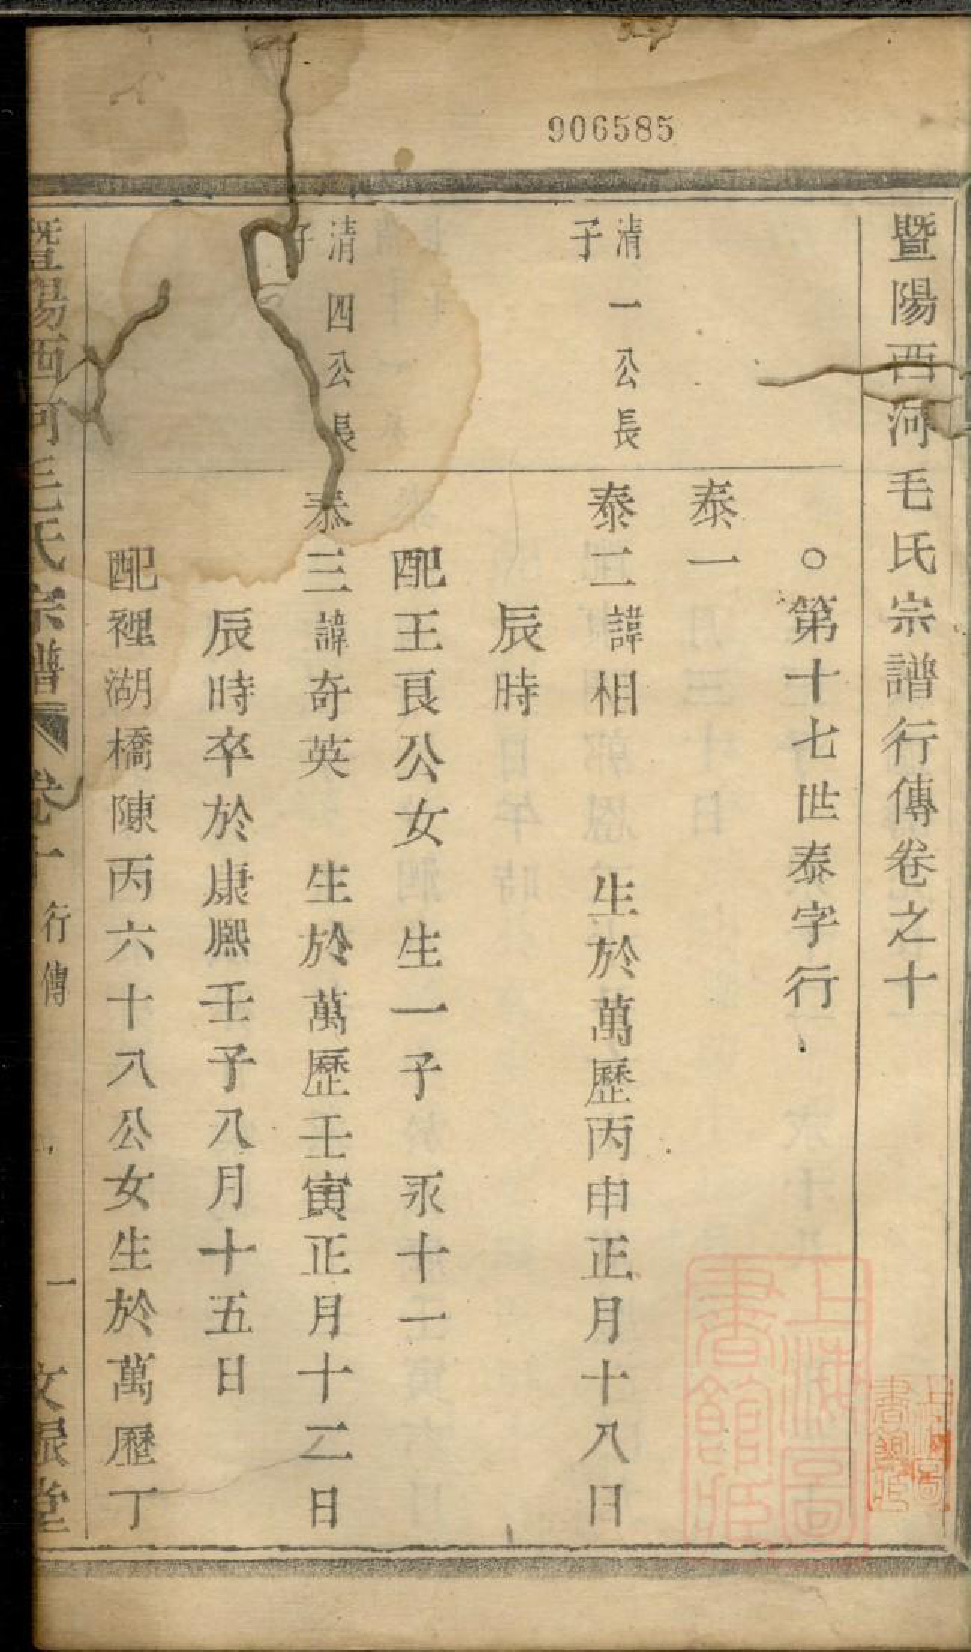 906585
暨陽西河毛氏宗譜行傳卷之十
○第十七世泰字行
泰一
清一公長
子
泰二諱相 生於萬歷丙申正月十八日
辰時
配王良公女 生一子 永十一
清四公長
子
泰三諱奇英 生於萬歷壬寅正月十二日
辰時卒於康熙壬子八月十五日
配裡湖橋陳丙六十八公女生於萬歷丁
暨陽西河毛氏宗譜 卷十 行傳 一 文眼堂
上海圖書館藏
上海圖書館藏